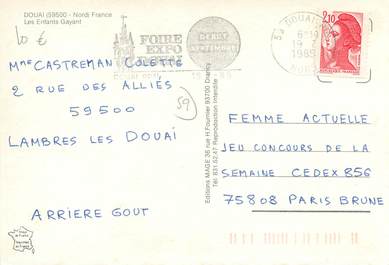 DOUAI (59500 - Nord) France
Les Enfants Gayant
10 €
FOIRE
EXPO
DOUAI
DEBUT
SEPTEMBRE
59 DOUAI
1985
2,10
Mme CASTREMAN COLETTE
2 RUE DES ALLIÉS
59500
59
LAMBRES LES DOUAI
ARRIERE GOUT
Editions MAGE 36 rue H. Fournier 93700 Drancy
Tél. 831.52.47 Reproduction Interdite
FEMME ACTUELLE
JEU CONCOURS DE LA
SEMAINE CEDEX 856
75808 PARIS BRUNE